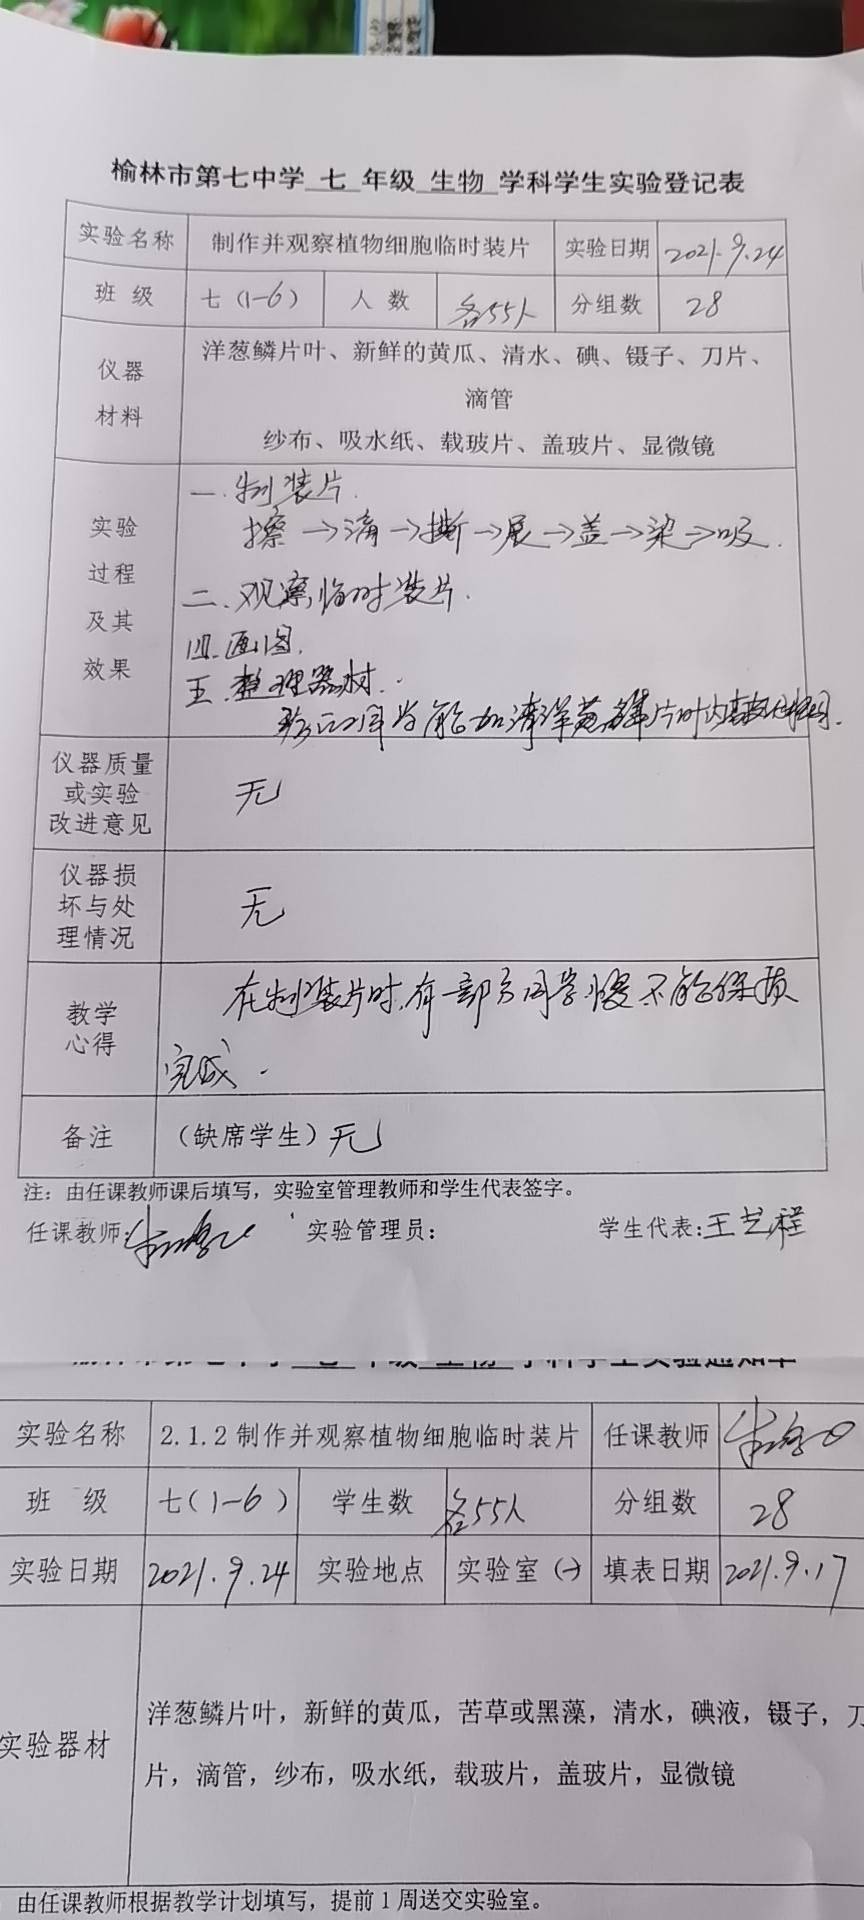 榆林市第七中学 七 年级 生物 学科学生实验登记表
实验名称 制作并观察植物细胞临时装片 实验日期 2021.9.24
班 级 七(1-6) 人 数 各55人 分组数 28
仪器
材料
洋葱鳞片叶、新鲜的黄瓜、清水、碘、镊子、刀片、
滴管
纱布、吸水纸、载玻片、盖玻片、显微镜
实验
过程
及其
效果
一.制装片.
擦→滴→撕→展→盖→染→吸.
二、观察临时装片.
四.画图.
五.整理器材.
同学能 清洋葱鳞片叶内表皮
仪器质量
或实验
改进意见
无
仪器损
坏与处
理情况
无
教学
心得
在制装片时,有一部分同学慢不能保质
完成.
备注 (缺席学生)无
注:由任课教师课后填写,实验室管理教师和学生代表签字。
任课教师: 实验管理员: 学生代表:王艺程
七 年级 生物 学科学生实验通知单
实验名称 2.1.2制作并观察植物细胞临时装片 任课教师
班 级 七(1-6) 学生数 各55人 分组数 28
实验日期 2021.9.24 实验地点 实验室(一) 填表日期 2021.9.17
实验器材
洋葱鳞片叶,新鲜的黄瓜,苦草或黑藻,清水,碘液,镊子,刀
片,滴管,纱布,吸水纸,载玻片,盖玻片,显微镜
由任课教师根据教学计划填写,提前1周送交实验室。